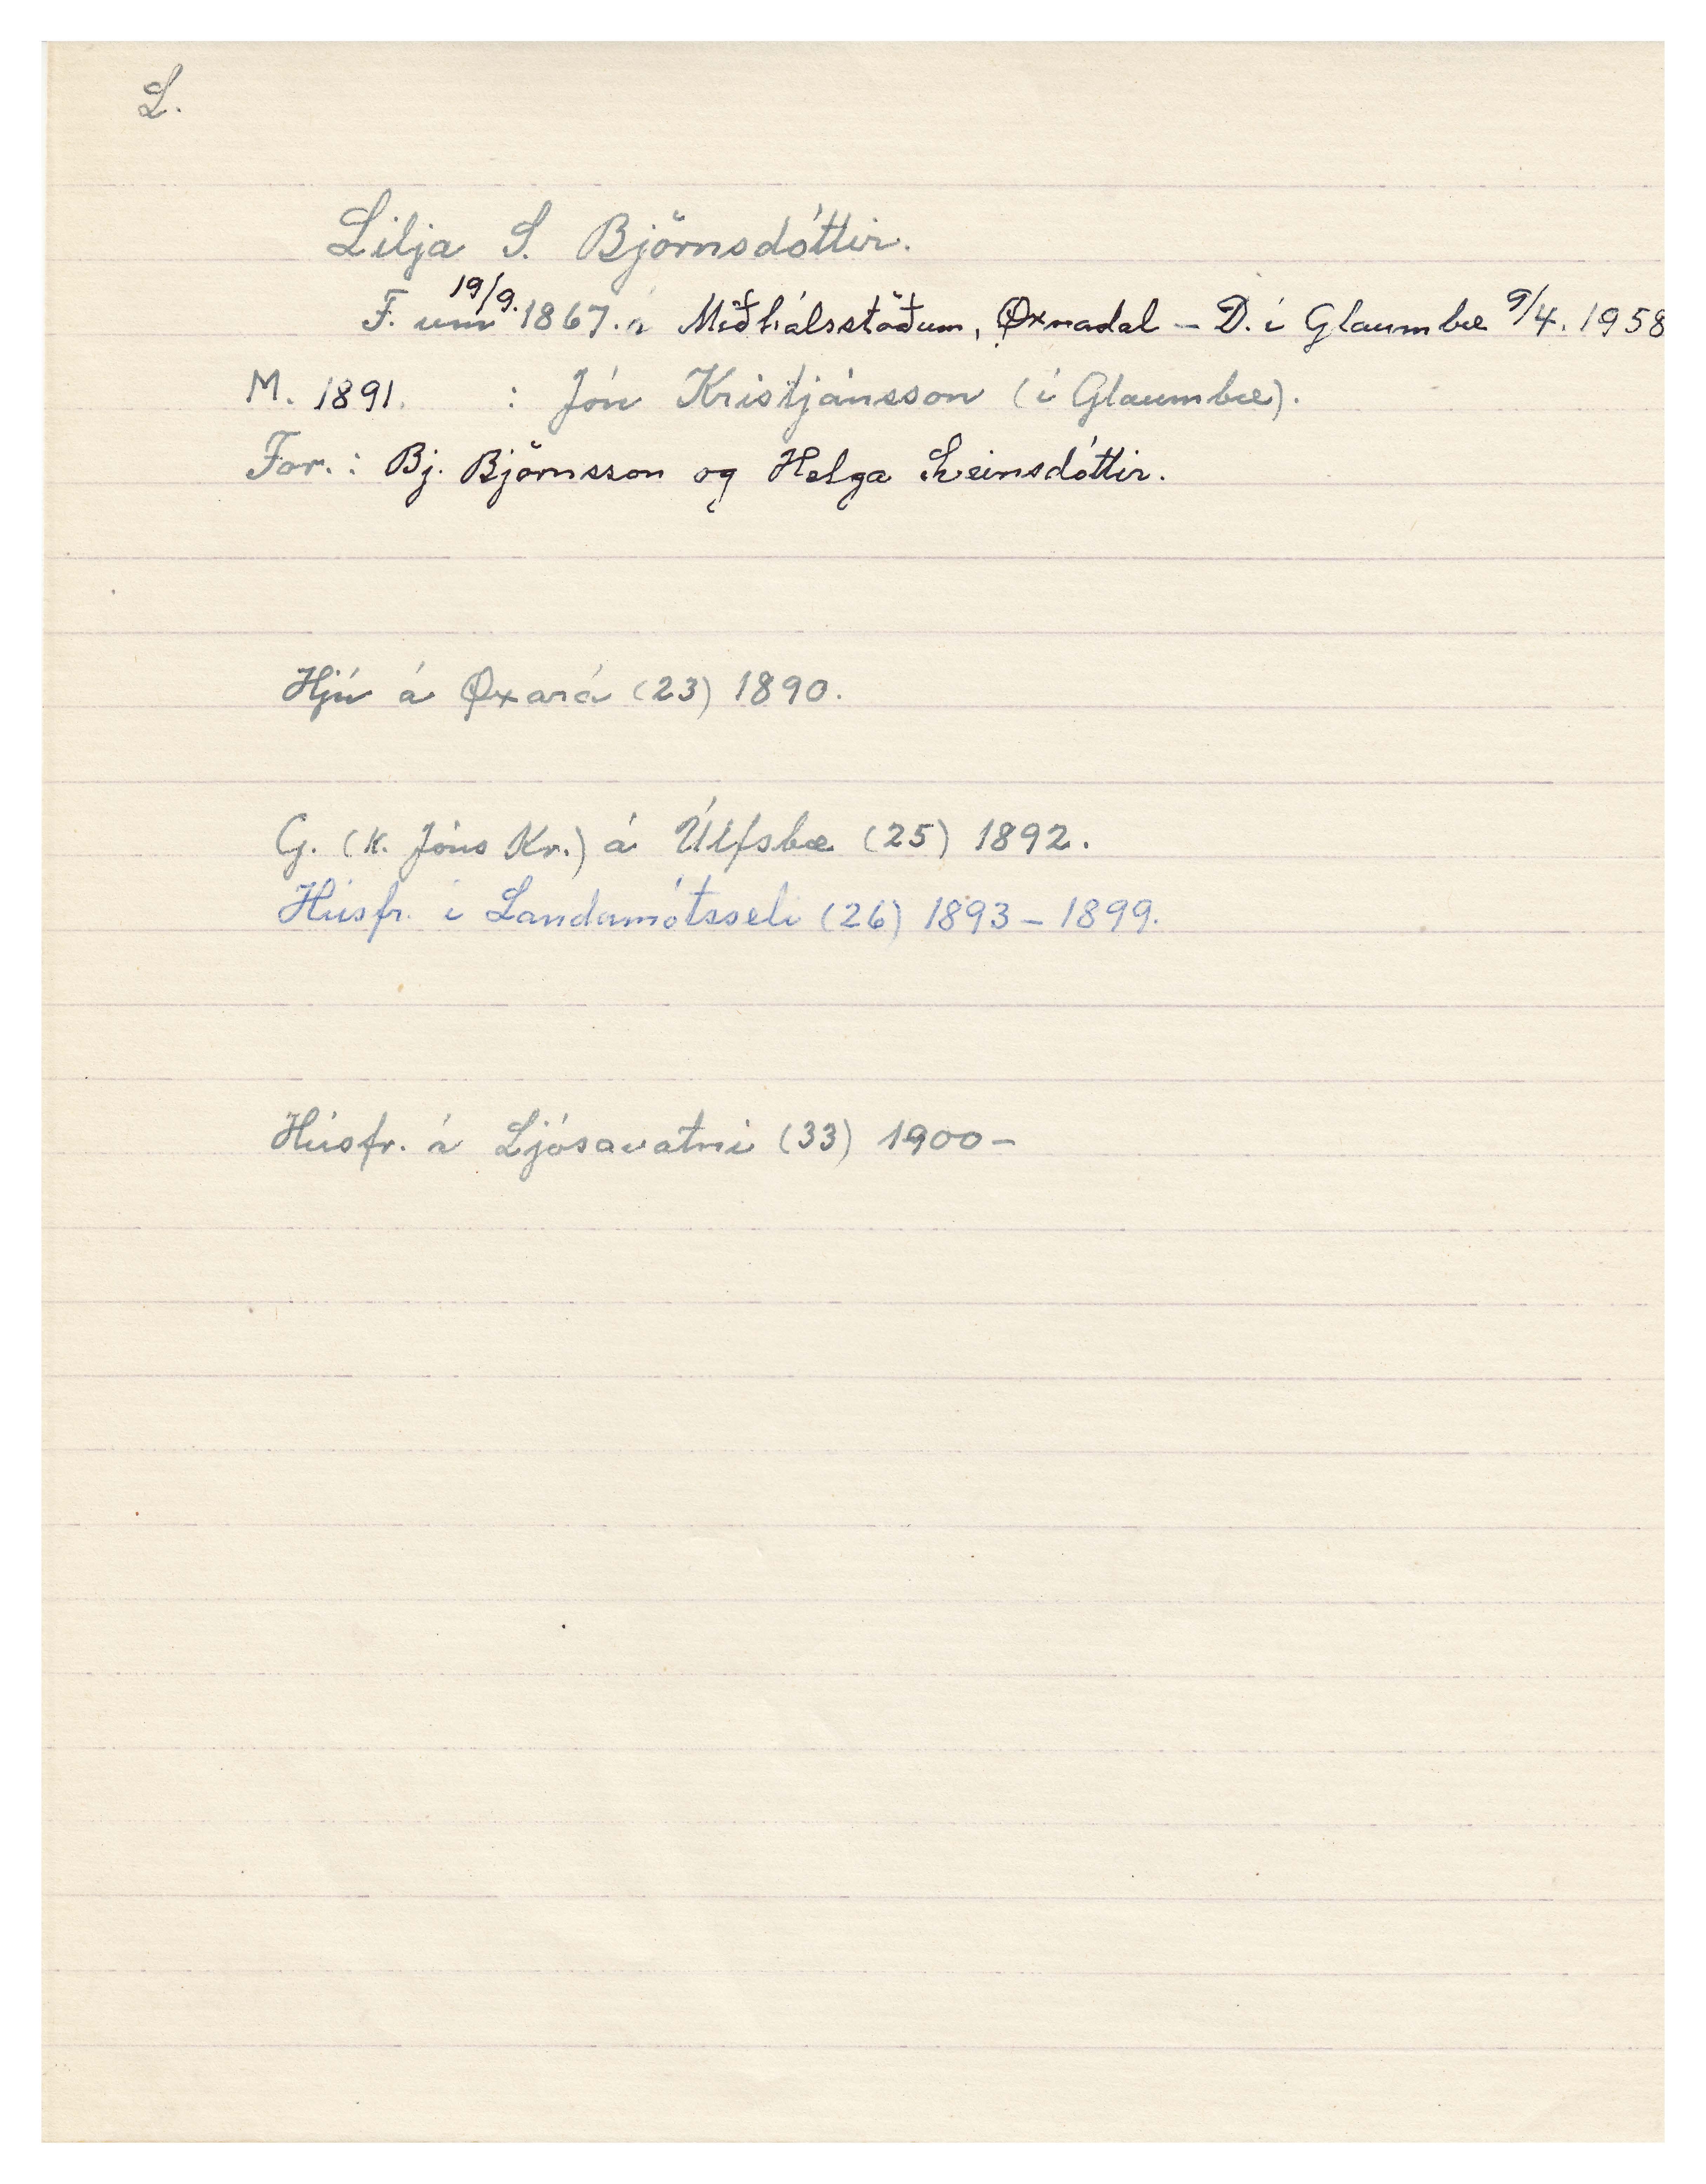 L.
Lilja S. Björnsdóttir.
F. um 19/9. 1867. á Miðhálsstöðum, Öxnadal – D. í Glaumbæ 9/4. 1958
M. 1891. : Jón Kristjánsson (í Glaumbæ).
For. : Bj. Björnsson og Helga Sveinsdóttir.
Hjú á Öxará (23) 1890.
G. (k. Jóns Kr.) á Úlfsbæ (25) 1892.
Húsfr. í Landamótsseli (26) 1893 – 1899.
Húsfr. á Ljósavatni (33) 1900 –